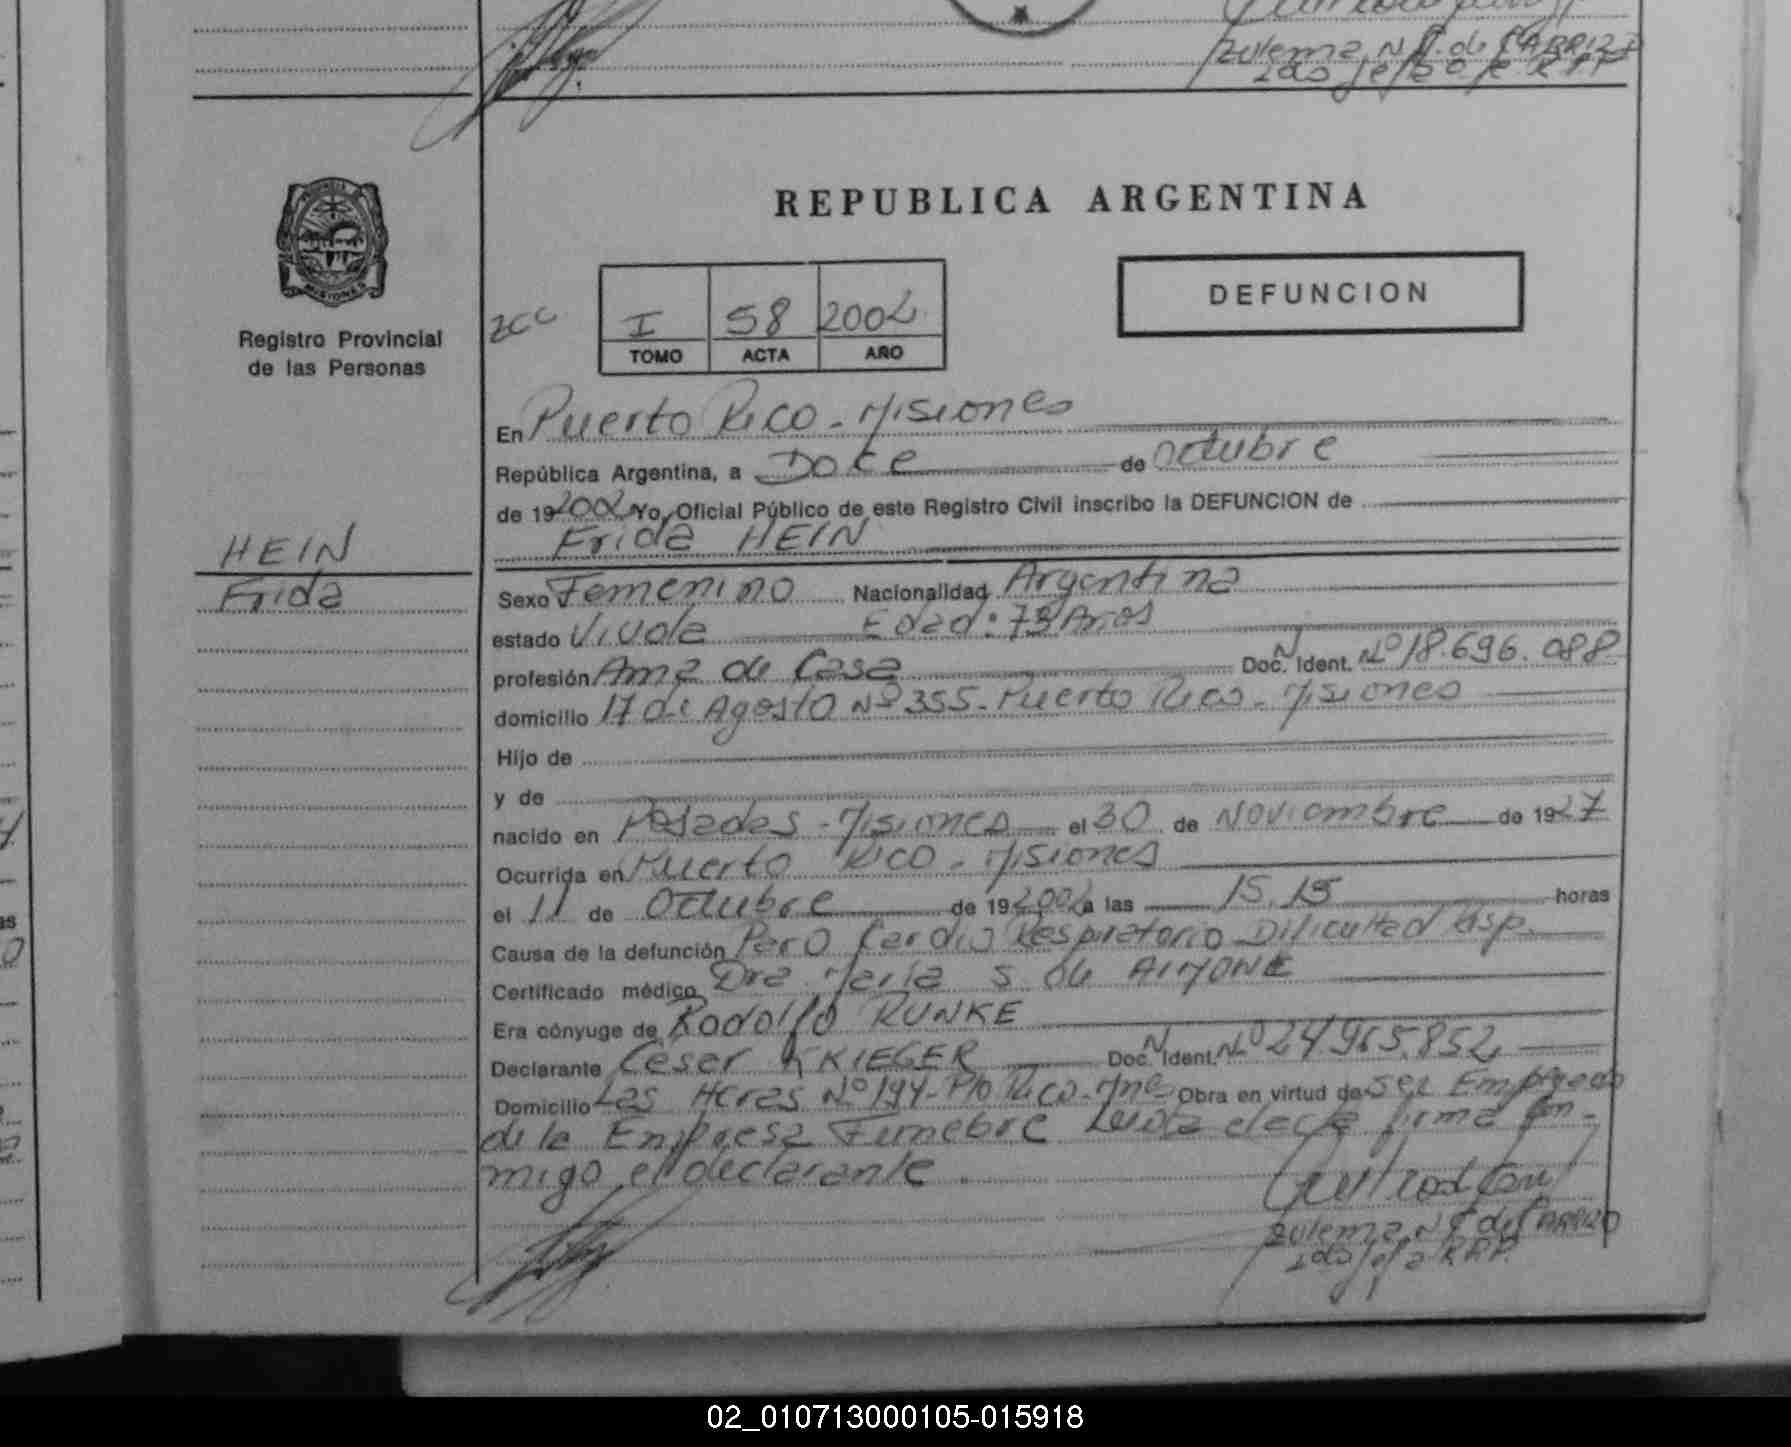 Zulema N. F. de CARRIZO
REPUBLICA ARGENTINA
PROVINCIA DE
MISIONES
Registro Provincial
de las Personas
I 58 2002
TOMO ACTA AÑO
DEFUNCION
En Puerto Rico - Misiones
República Argentina, a Doce de octubre
de 19 2002 Yo, Oficial Público de este Registro Civil inscribo la DEFUNCION de
Frida HEIN
HEIN
Frida
Sexo Femenino Nacionalidad Argentina
estado Viuda Edad: 73 Años
profesión Ama de Casa Doc. N Ident. Nº 18.696.088
domicilio 17 de Agosto Nº 355 - Puerto Rico - Misiones
Hijo de
y de
nacido en Posadas - Misiones el 30 de Noviembre de 1927
Ocurrida en Puerto Rico - Misiones
el 11 de Octubre de 19 2002 a las 15.15 horas
Causa de la defunción Paro Cardio Respiratorio Dificultad Resp.
Certificado médico Dra María S. de AIMONE
Era cónyuge de Rodolfo RUNKE
Declarante Cesar KRIEGER Doc. N Ident. Nº 24.965.852
Domicilio Las Heras Nº 194 - Pto Rico - Mnes Obra en virtud de ser Empleado
de la Empresa Funebre Leida el acta firma con-
migo el declarante.
Zulema N F de CARRIZO
02_010713000105-015918